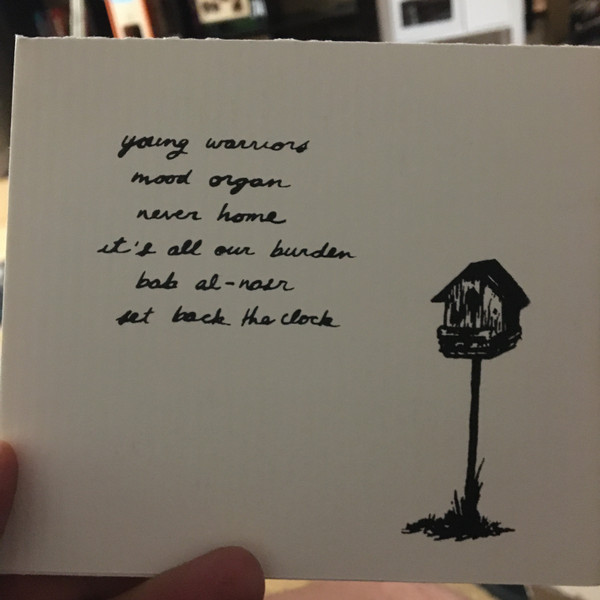 young warriors
mood organ
never home
it's all our burden
bab al-nasr
set back the clock